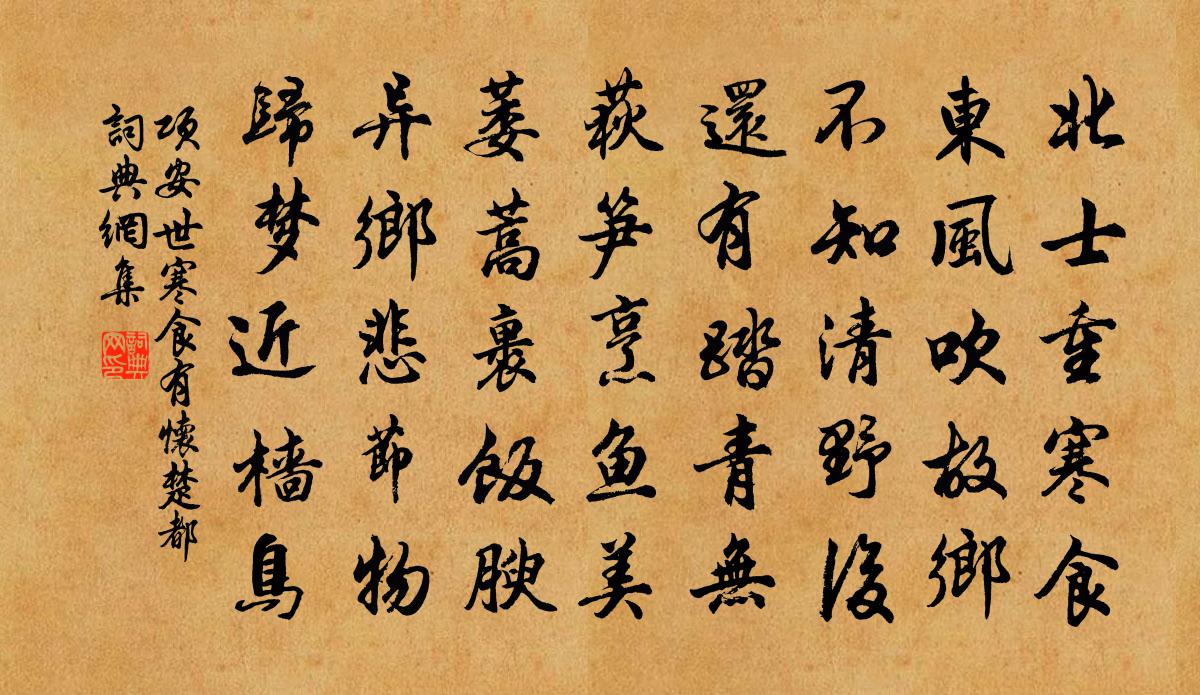 北士重寒食
東風吹故鄉
不知清野後
還有踏青無
荻笋烹鱼美
蒌蒿裹飯腴
异鄉悲節物
歸梦近檣烏
項安世寒食有懷楚都
詞典網集
詞典
网印